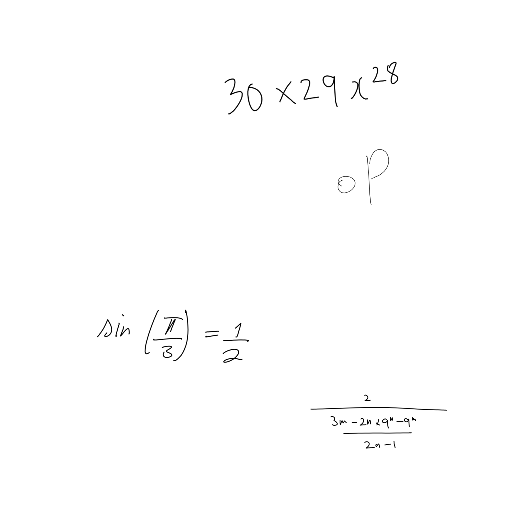 30 × 29 x^28
oP
sin (π/3) = 1/2
2/((3m - 2n × 9^n - 9^n)/(2n - 1))